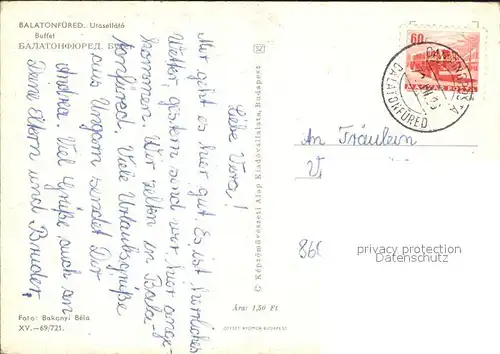 BALATONFÜRED. Utasellátó
Buffet
БАЛАТОНФЮРЕД. Б
Liebe Vera!
Mir geht es hier gut. Es ist herrliches
Wetter, gestern sind wir hier ange-
kommen. Wir zelten in Bala-
tonfüred. Viele Urlaubsgrüße
aus Ungarn sendet Dir
Andrea. Viel Grüße auch an
Deine Eltern und Bruder.
Foto: Bakonyi Béla
XV.—69/721.
SZ
© Képzőművészeti Alap Kiadóvállalata, Budapest
Ára: 1,50 Ft
OFFSET NYOMDA BUDAPEST
60
MAGYAR POSTA
CAMPING
BALATONFÜRED
An Fräulein
V
860
privacy protection
Datenschutz